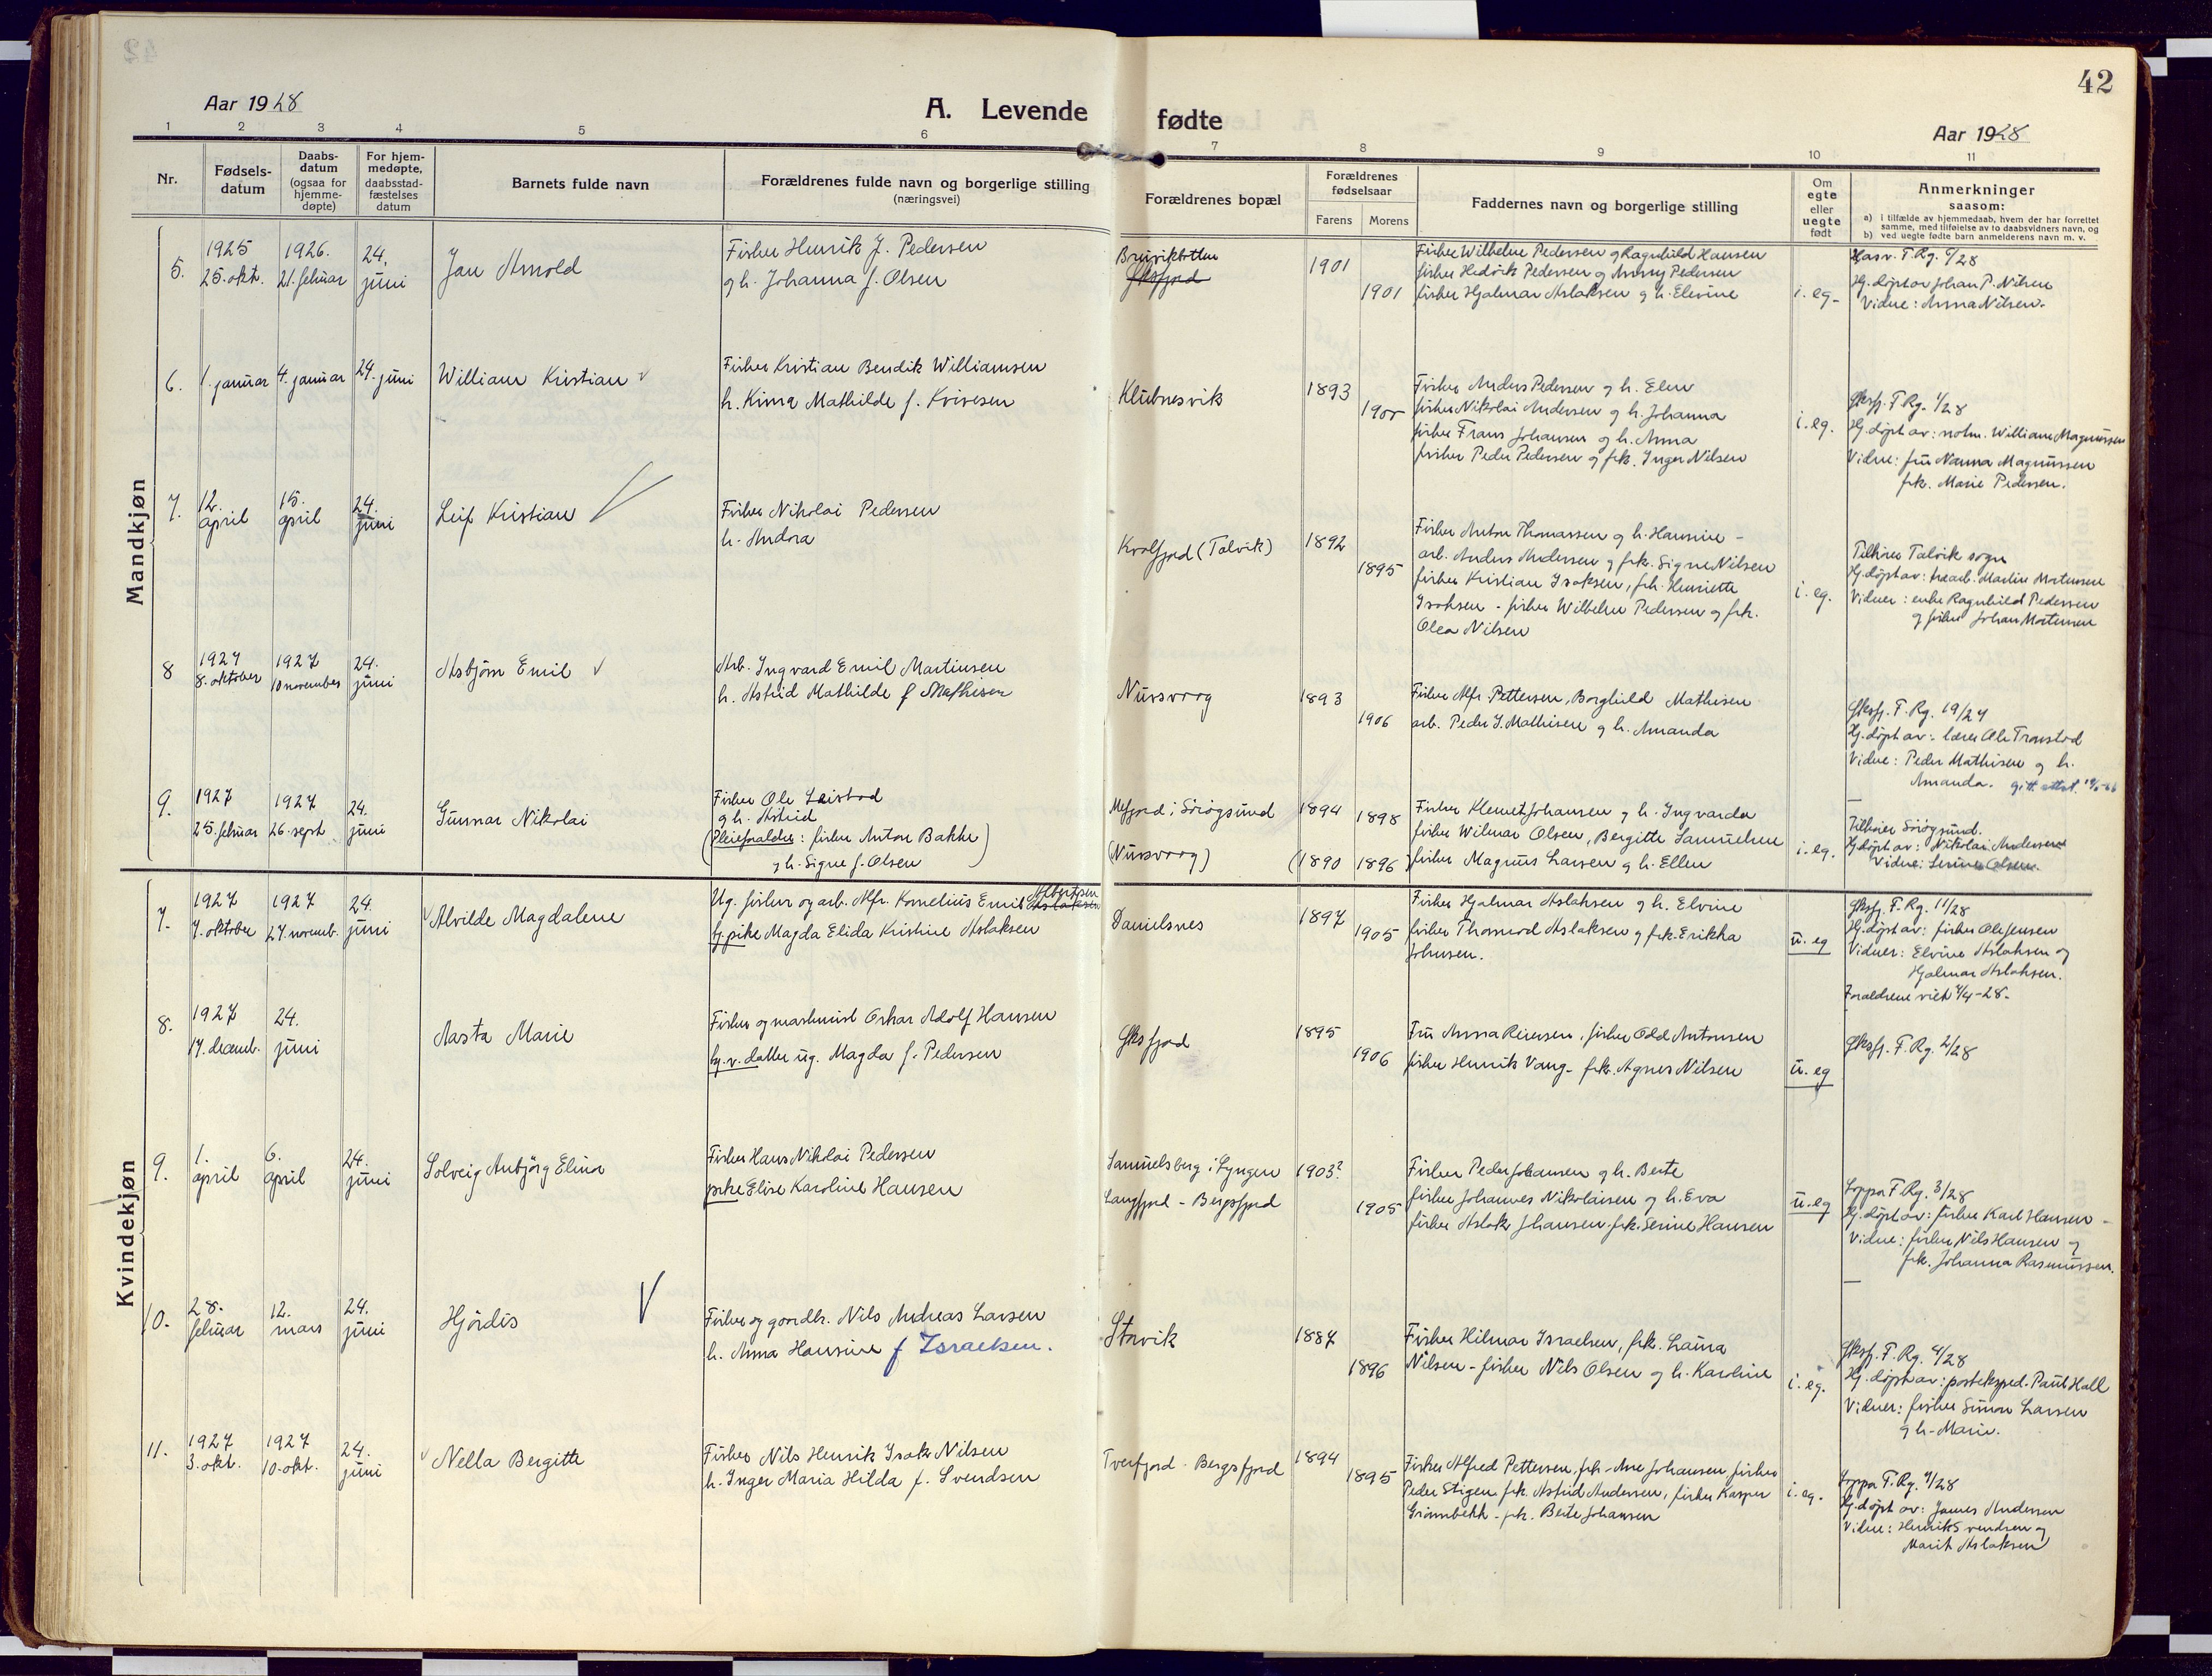 42
Aar 1928
A. Levende fødte
Aar 1928
1 2 3 4 5 6 7 8 9 10 11
Nr.
Fødselsdatum
Daabsdatum (ogsaa for hjemmedøpte)
For hjemmedøpte, daabsstadfæstelses datum
Barnets fulde navn
Forældrenes fulde navn og borgerlige stilling (næringsvei)
Forældrenes bopæl
Forældrenes fødselsaar
Farens Morens
Faddernes navn og borgerlige stilling
Om egte eller uegte født
Anmerkninger saasom:
a) I tilfælde av hjemmedaab, hvem der har forrettet samme, med tilføielse av to daabsvidners navn, og
b) ved uegte fødte barn anmelderens navn m. v.
Mandkjøn
5. 1925 25. okt. 1926. 21. februar 24. juni Jan Arnold
Fisker Henrik J. Pedersen
og h. Johanna f. Olsen
1901 1901
Fisker Wilhelm Pedersen og Ragnhild Hansen
fisker Hedrik Pedersen og Anny Pedersen
fisker Hjalmar Aslaksen og h. Elevine
i. eg.
Hasv. F. Rg. 6/28
Hj. døpt av Johan P. Nilsen
Vidne: Anna Nilsen.
6. 1. januar 4. januar 24. juni William Kristian
Fisker Kristian Bendik Williamsen
h. Kima Mathilde f. Kvivesen
Klubnesvik 1893 1900
Fisker Anders Pedersen og h. Elen
fisker Nikolai Andersen og h. Johanna
fisker Frans Johansen og h. Anna
fisker Peder Pedersen og frk. Inger Nilsen
i. eg.
Øksfj. F. Rg. 1/28
Hj. døpt av: notm. William Magnussen
Vidne: fru Nanna Magnussen
frk. Marie Pedersen.
7. 12. april 15. april 24. juni Leif Kristian
Fisker Nikolai Pedersen
h. Andrea
Kvalfjord (Talvik) 1892 1895
Fisker Anton Thomassen og h. Hansine -
arb. Anders Andersen og frk. Signe Nilsen
fisker Kristian Isaksen, frk. Henriette
Isaksen - fisker Wilhelm Pedersen og frk.
Olea Nilsen
i. eg.
Tilhører Talvik sogn
Hj. døpt av: Martin Mortensen
Vidner: enke Ragnhild Pedersen
og fisker Johan Mortensen
8 1927 8. oktober 1927 10 november 24. juni Asbjørn Emil
Arb. Ingvard Emil Martinsen
h. Astrid Mathilde f Mathisen
Nuvsvaag 1893 1906
Fisker Alfr. Pettersen, Borghild Mathisen
arb. Peder J. Mathisen og h. Amanda
Øksfj. F. Rg. 19/27
Hj. døpt av: lærer Ole Transtad
Vidne: Peder Mathisen og h.
Amanda.
9. 1927 25. februar 1927 26. sept 24. juni Gunnar Nikolai
Fisker Ole Leistad
og h. Astrid
(Pleieforaldre: fisker Anton Bakke
og h. Signe f. Olsen)
Mefjord i Sörögsund (Nuvsvaag)
1894 1898 (1890 1896)
Fisker Klemet Johansen og h. Ingvarda
fisker Wilmar Olsen, Bergitte Samuelsen
fisker Magnus Larsen og h. Ellen
i. eg.
Tilhører Sörögsund.
Hj. døpt av: Nikolai Andersen
Vidne: Serine Olsen.
Kvindekjøn
7. 1927 7. oktober 1927 27. novemb. 24. juni Alvilde Magdalene
Ug. fisker og arb. Alfr. Kornelius Emil Albertsen
fg. pike Magda Elida Kristine Aslaksen
Danielsnes 1897 1905
Fisker Hjalmar Aslaksen og h. Elvine
fisker Thormod Aslaksen og frk. Erikka
Johnsen.
u. eg
Øksfj. F. Rg. 11/28
Hj. døpt av: fisker Ole Jensen
Vidner: Elvine Aslaksen og
Hjalmar Aslaksen.
Foraldrene viet 9/4-28.
8. 1927 17. decemb. 24. juni Aasta Marie
Fisker og maskinist Oskar Adolf Hansen
fg. v. datter ug. Magda f. Pedersen
Øksfjord 1895 1906
Fru Anna Reiersen, fisker Odd Antonsen
fisker Henrik Vang - frk. Agnes Nilsen
u. eg
Øksfj. F. Rg. 2/28
9. 1. april 6. april 24. juni Solveig Anbjørg Elina
Fisker Hans Nikolai Pedersen
pike Elise Karoline Hansen
Samuelsberg i Lyngen
Langfjord - Bergsfjord
1903? 1905
Fisker Peder Johansen og h. Berte
fisker Johannes Nikolaisen og h. Eva
fisker Aslak Johansen frk. Serine Hansen
u. eg
Loppa F. Rg. 3/28
Hj. døpt av: fisker Karl Hansen -
Vidne: fisker Nils Hansen og
frk. Johanna Rasmussen.
10. 28. februar 12. mars 24. juni Hjördis
Fisker og gaardbr. Nils Andreas Larsen
h. Anna Hansine f Israelsen.
Storvik 1887 1896
Fisker Hilmar Israelsen, frk. Laura
Nilsen - fisker Nils Olsen og h. Karoline
i. eg.
Øksfj. F. Rg. 4/28
Hj. døpt av: postekspd. Paul Hall
Vidner: fisker Simon Larsen
og h. Marie.
11. 1927 3. okt. 1927 10. okt. 24. juni Nella Bergitte
Fisker Nils Henrik Isak Nilsen
h. Inger Maria Hilda f. Svendsen
Tverfjord - Bergsfjord 1894 1895
Fisker Alfred Pettersen, frk. Ane Johansen, fisker
Peder Stigen frk. Astrid Andersen, fisker Kasper
Grønbekk - frk. Berte Johansen
i. eg.
Loppa F. Rg. 4/28
Hj. døpt av: James Andersen
Vidne: Henrik Svendsen og
Marit Aslaksen